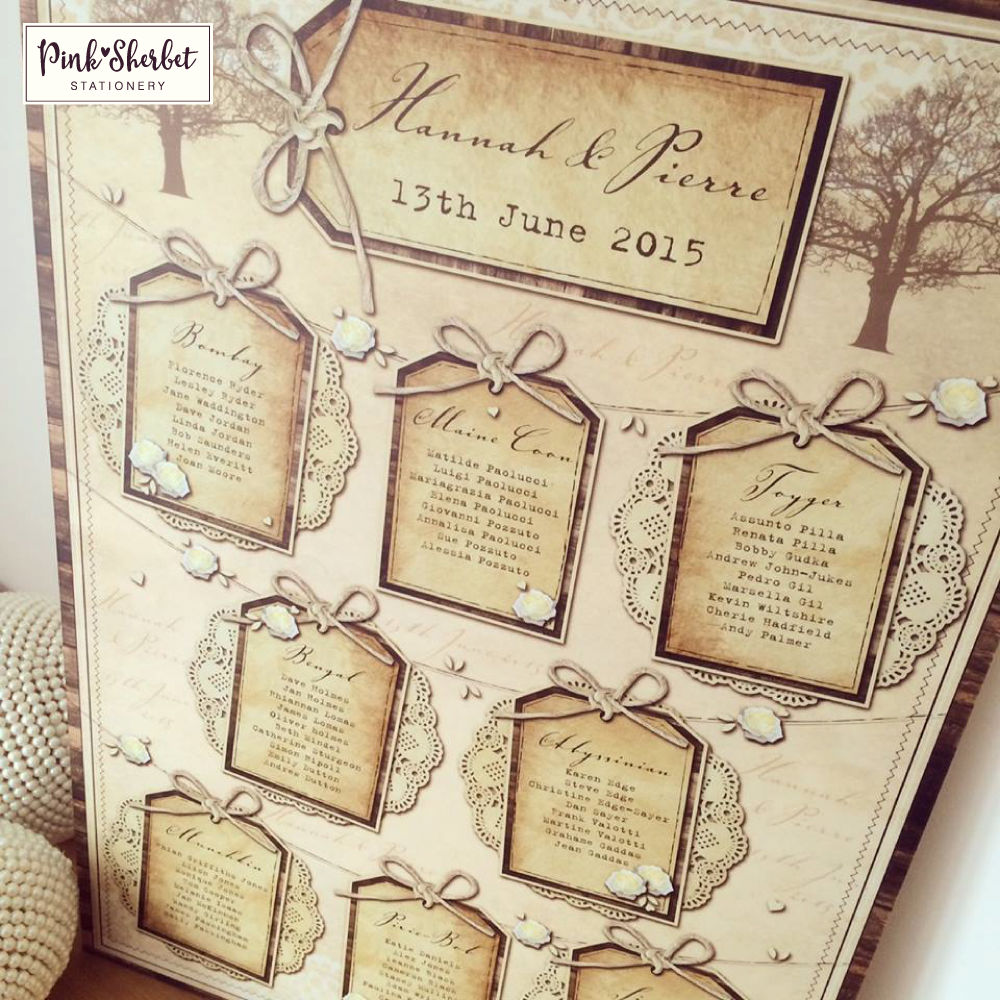 Pink Sherbet
STATIONERY
Hannah & Pierre
13th June 2015
Bombay
Florence Ryder
Lesley Ryder
Jane Waddington
Dave Jordan
Linda Jordan
Bob Saunders
Helen Everitt
Joan Moore
Maine Coon
Matilde Paolucci
Luigi Paolucci
Mariagrazia Paolucci
Elena Paolucci
Giovanni Pozzuto
Annalisa Paolucci
Sue Pozzuto
Alessia Pozzuto
Toyger
Assunto Pilla
Renata Pilla
Bobby Gudka
Andrew John-Jukes
Pedro Gil
Marsella Gil
Kevin Wiltshire
Cherie Hadfield
Andy Palmer
Bengal
Dave Holmes
Jan Holmes
Rhiannan Lomas
James Lomas
Oliver Holmes
Beth Eindel
Catherine Sturgeon
Simon Ripoll
Emily Dutton
Andres Dutton
Abyssinian
Karen Edge
Steve Edge
Christine Edge-Sayer
Dan Sayer
Frank Valotti
Martine Valotti
Grahame Gaddas
Jean Gaddas
Munchkin
Sarah Griffiths Jones
Jones
Monique Jones
Cooper
Katie Daniels
Alex Jones
Leanne Black
Cameron Black
Stacey